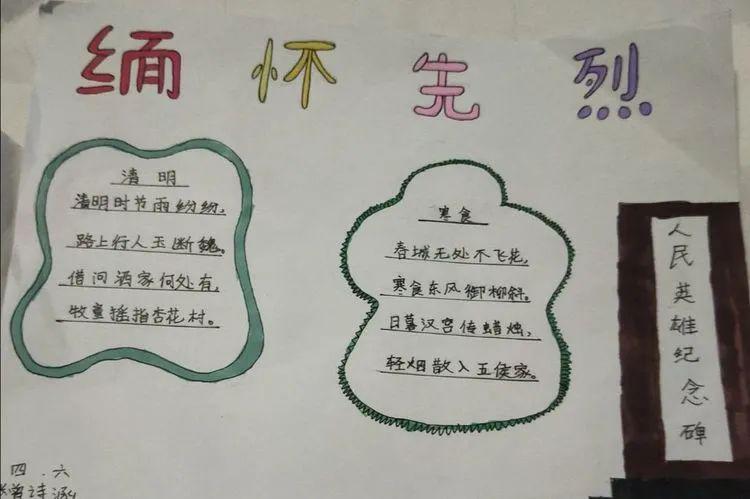 缅怀先烈
清明
清明时节雨纷纷,
路上行人玉断魂。
借问酒家何处有,
牧童摇指杏花村。
寒食
春城无处不飞花,
寒食东风御柳斜。
日暮汉宫传蜡烛,
轻烟散入五侯家。
人民英雄纪念碑
四.六
诗涵